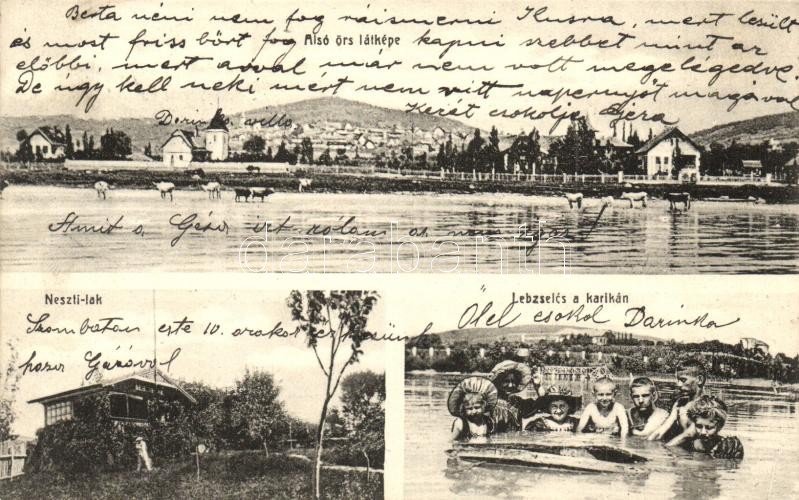 Berta néni nem fog ráismerni Kusra, mert lesült
és most friss bőrt fog kapni szebbet mint az
Alsó örs látképe
előbbi, mert avval már nem volt megelégedve.
De úgy kell neki mért nem vitt napernyőt magával
Kezét csókolja Géza
Darinka villa
Amit a Géza írt rólam az nem igaz!
darabanth
Neszti-lak
Lebzselés a karikán
Szombaton este 10 órakor érkezünk
haza Gézával
Ölel csókol Darinka